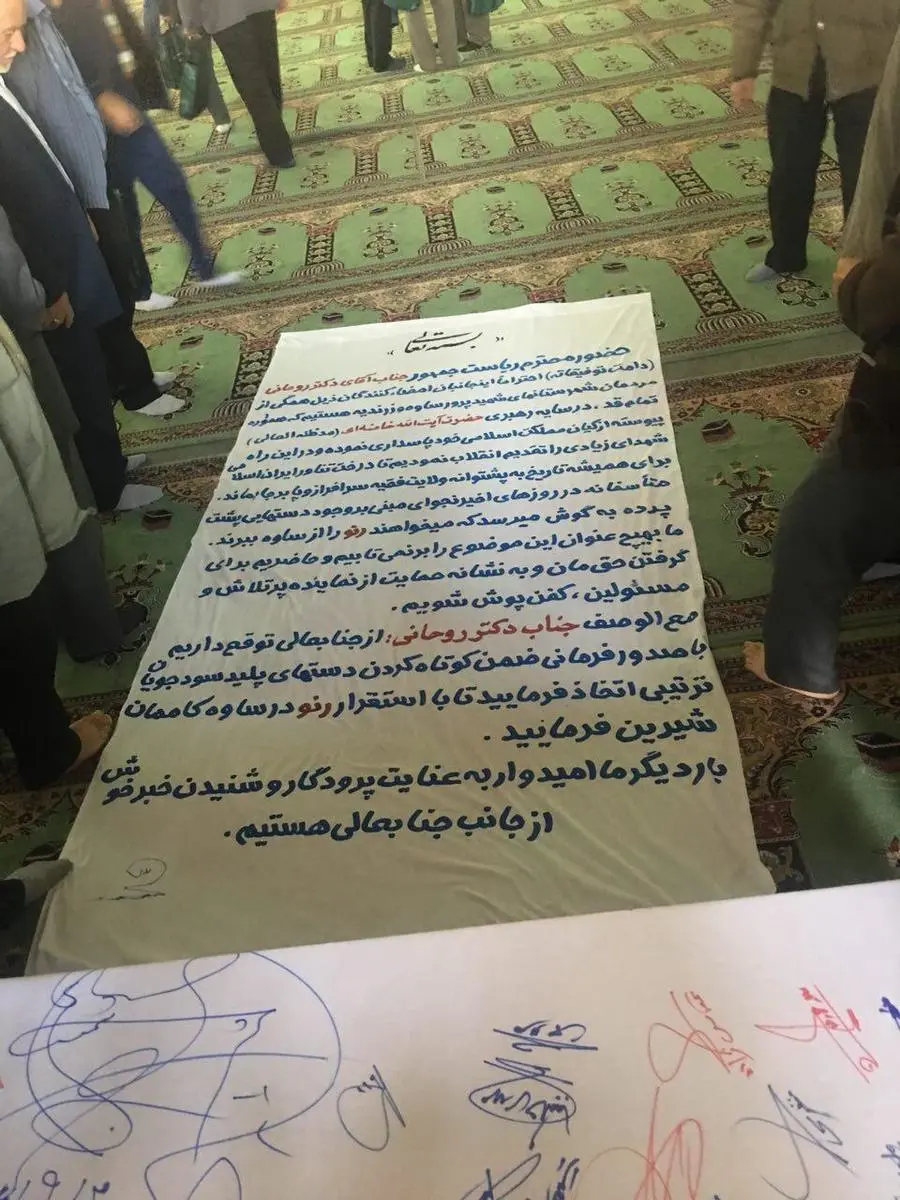 « بسمه تعالی »
حضور محترم ریاست جمهور جناب آقای دکتر روحانی
(دامت توفیقاته) احتراماً اینجانبان امضاء کنندگان ذیل همگی از
مردمان شهرستانهای شهید پرور ساوه و زرندیه هستیم که همواره
تمام قد ، در سایه رهبری حضرت آیت الله خامنه ای (مدظله العالی)
پیوسته از کیان مملکت اسلامی خود پاسداری نموده و در این راه
شهدای زیادی را تقدیم انقلاب نمودیم تا درخت تناور ایران اسلامی
برای همیشه تاریخ به پشتوانه ولایت فقیه سرافراز و پا برجا بماند.
متاسفانه در روزهای اخیر نجوای مبنی بر وجود دستهایی پشت
پرده به گوش میرسد که میخواهند رنو را از ساوه ببرند.
ما بهیچ عنوان این موضوع را بر نمی تابیم و حاضریم برای
گرفتن حق مان و به نشانه حمایت از نماینده پرتلاش و
مسئولین ، کفن پوش شویم .
مع الوصف جناب دکتر روحانی: از جنابعالی توقع داریم
با صدور فرمانی ضمن کوتاه کردن دستهای پلید سودجویان
ترتیبی اتخاذ فرمایید تا با استقرار رنو در ساوه کاممان
شیرین فرمایید .
بار دیگر ما امیدوار به عنایت پرودگار و شنیدن خبر خوش
از جانب جنابعالی هستیم .